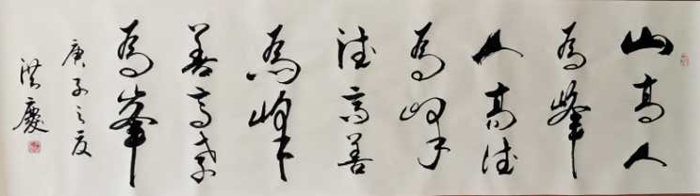 山高人
為峰
人高德
為峰
德高善
為峰
善高孝
為峯
庚子之夏
洪慶